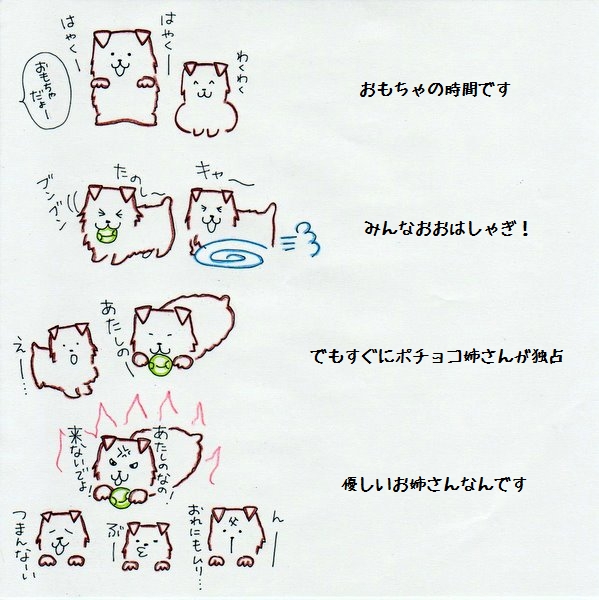 はやくー
はやくー
おもちゃ
だよー
わくわく
おもちゃの時間です
ブンブン
たのし〜
キャ〜
みんなおおはしゃぎ!
あたしのー
えー…
でもすぐにポチョコ姉さんが独占
あたしのなの!
来ないでよ!
優しいお姉さんなんです
つまんなーい
ぶー
おれにもムリ…
んー